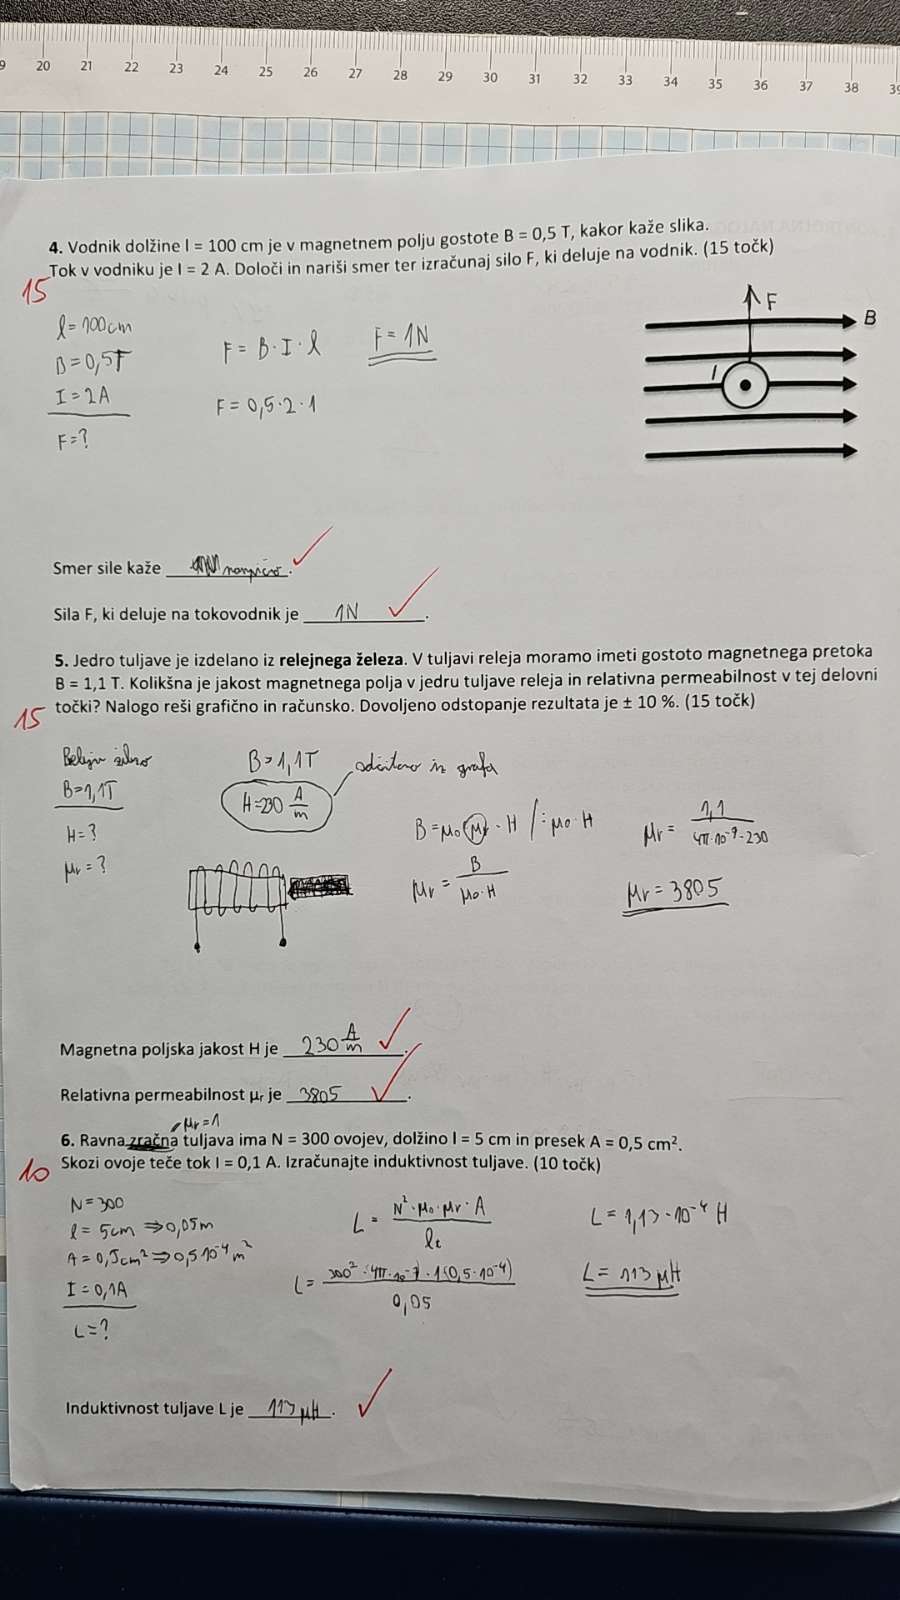 9 20 21 22 23 24 25 26 27 28 29 30 31 32 33 34 35 36 37 38 39
4. Vodnik dolžine l = 100 cm je v magnetnem polju gostote B = 0,5 T, kakor kaže slika.
Tok v vodniku je I = 2 A. Določi in nariši smer ter izračunaj silo F, ki deluje na vodnik. (15 točk)
15
l = 100cm
B = 0,5T
I = 2A
F = ?
F = B · I · l
F = 0,5 · 2 · 1
F = 1N
F
B
I
Smer sile kaže navpično.
Sila F, ki deluje na tokovodnik je 1N.
5. Jedro tuljave je izdelano iz relejnega železa. V tuljavi releja moramo imeti gostoto magnetnega pretoka
B = 1,1 T. Kolikšna je jakost magnetnega polja v jedru tuljave releja in relativna permeabilnost v tej delovni
točki? Nalogo reši grafično in računsko. Dovoljeno odstopanje rezultata je ± 10 %. (15 točk)
15
B = 1,1T
H = ?
μr = ?
B = 1,1T
H = 230 A/m
odčitano iz grafa
B = μ0 · μr · H / : μ0 · H
μr = B / μ0 · H
μr = 1,1 / 4π · 10⁻⁷ · 230
μr = 3805
Magnetna poljska jakost H je 230 A/m.
Relativna permeabilnost μr je 3805.
μr = 1
6. Ravna zračna tuljava ima N = 300 ovojev, dolžino l = 5 cm in presek A = 0,5 cm².
Skozi ovoje teče tok I = 0,1 A. Izračunajte induktivnost tuljave. (10 točk)
10
N = 300
l = 5cm ⇒ 0,05m
A = 0,5cm² ⇒ 0,5 10⁻⁴ m²
I = 0,1A
L = ?
L = N² · μ0 · μr · A / lt
L = 300² · 4π · 10⁻⁷ · 1 (0,5 · 10⁻⁴) / 0,05
L = 1,13 · 10⁻⁴ H
L = 113 μH
Induktivnost tuljave L je 113 μH.